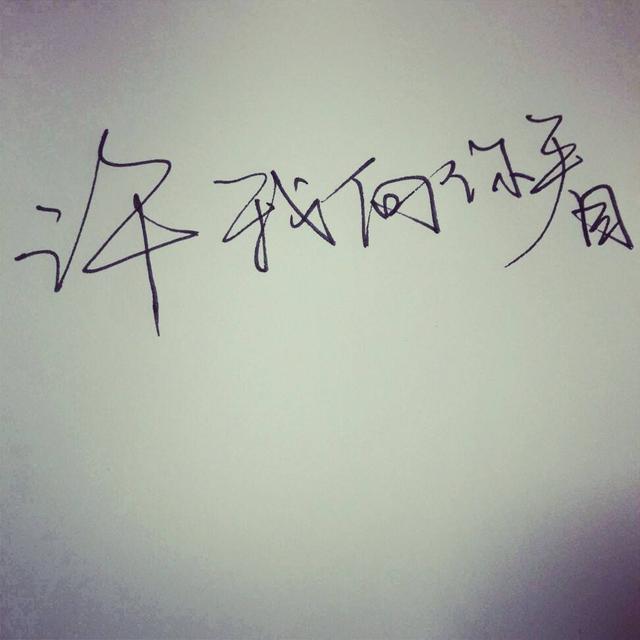 许我向你看